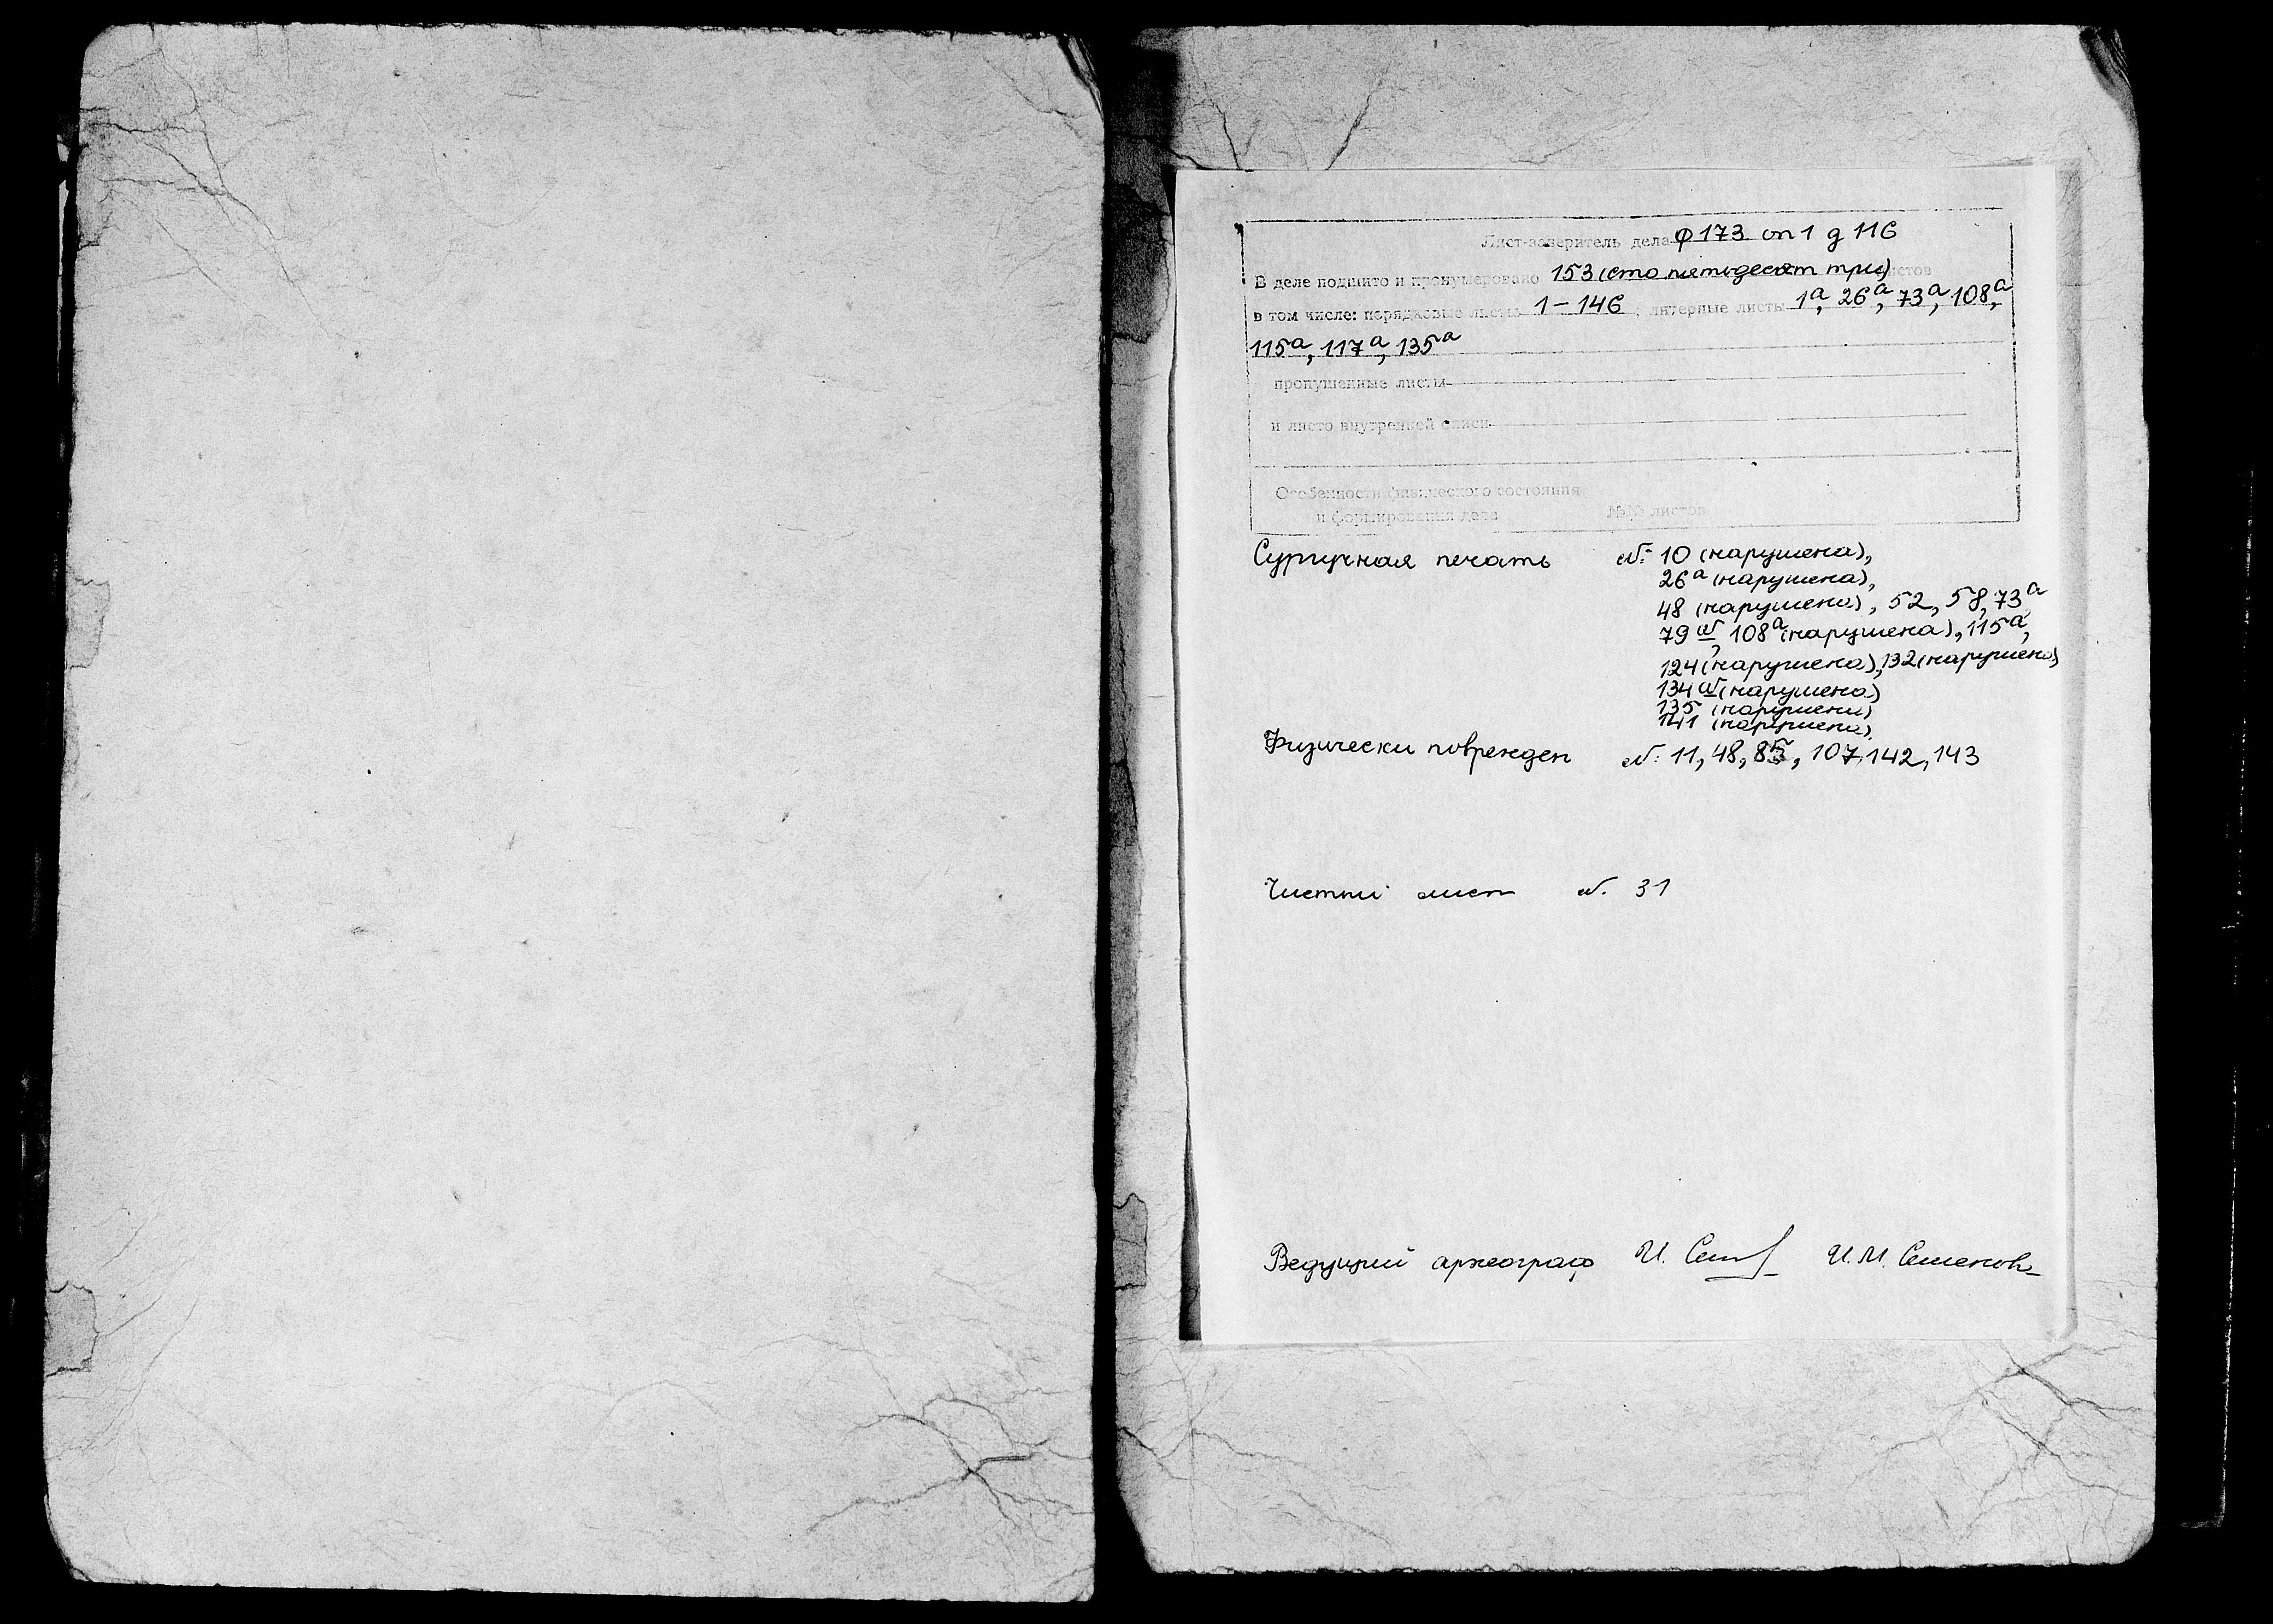 Лист-заверитель дела ф 173 оп 1 д 116
В деле подшито и пронумеровано 153 (сто пятьдесят три) листов
в том числе: порядковые листы 1 – 146 ; литерные листы 1а, 26а, 73а, 108а,
115а, 117а, 135а
пропущенные листы
и листо внутренней описи
Особенности физического состояния
и формирования дела №№ листов
Сургучная печать л. 10 (нарушена),
26а (нарушена),
48 (нарушена), 52, 58, 73а
79 об, 108а (нарушена), 115а,
124 (нарушена), 132 (нарушена)
134 об (нарушена)
135 (нарушена)
141 (нарушена)
Физически поврежден л. 11, 48, 85, 107, 142, 143
Чистый лист л. 31
Ведущий археограф И. И.М. Семенова